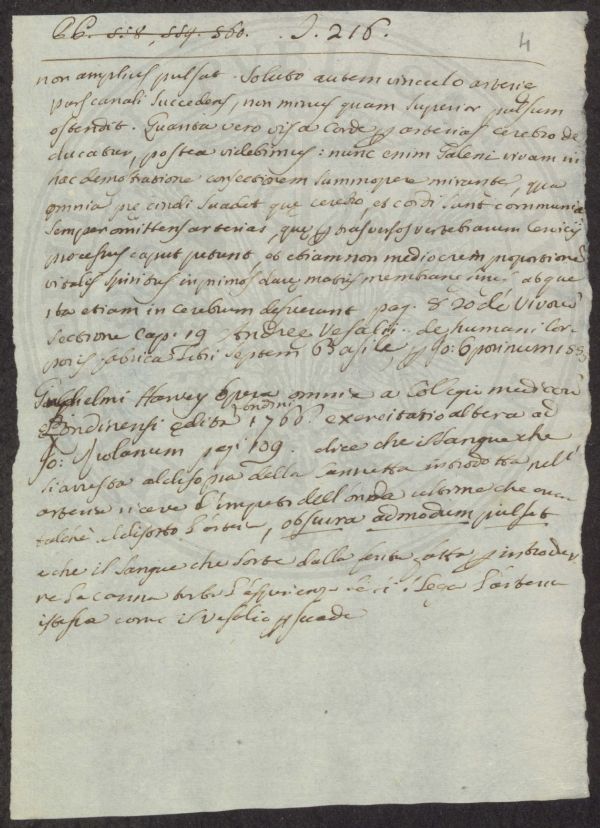 66. 518, 559. 560. . J. 216. 4
non amplius pulsat. Soluto autem vinculo arterie
pars canali succedens, non minus quam superior pulsum
ostendit. Quanta vero vis a corde p arterias cerebro de
ducatur, postea videbimus: nunc enim Galeni vivam in
hac demostratione consectionem summopere mirante, qua
omnia precindi suadet que cerebro, et cordi sunt communia
semper omittens arterias, que p trasversos vertebrarum cervicis
processus caput petunt, et etiam non mediocrem proportione
vitalis spiritus in primos dure matris membrane sinus, atque
ita etiam in cerebrum deferunt. pag. 820 de Vivorum
sectione Cap. 19 Andree Vesalij. de humani Cor-
poris fabrica Libri septem Basile, p Jo: Oporinum
Guglielmi Harvey Opera omnia a Collegio medicoru
Londinensi edita Londini 1766. exercitatio altera ad
Jo: Riolanum pag: 109. dice che il sangue che
si arresta al disopra della cannetta introdotta nell'
arteria riceve l'impeti dell'onda ultime che
talchè al disotto l'arteria, obscura admodum pulsat
e che il sangue che sorte dalla ferita fatta p introdur
re la canna turba l'esperienza se si lega l'arteria
istessa come il Vesalio psuade